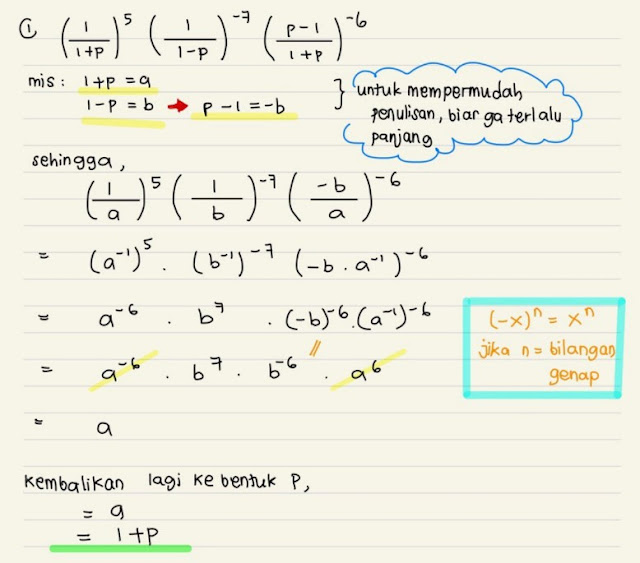 ① (1/(1+p))^5 (1/(1-p))^-7 ((p-1)/(1+p))^-6
mis : 1+p = a
1-p = b → p-1 = -b
} untuk mempermudah
penulisan, biar ga terlalu
panjang
sehingga,
(1/a)^5 (1/b)^-7 (-b/a)^-6
= (a^-1)^5 . (b^-1)^-7 (-b . a^-1)^-6
= a^-6 . b^7 . (-b)^-6 . (a^-1)^-6
= a^-6 . b^7 . b^-6 . a^6
(-x)^n = x^n
jika n = bilangan
genap
= a
kembalikan lagi ke bentuk P,
= a
= 1+p